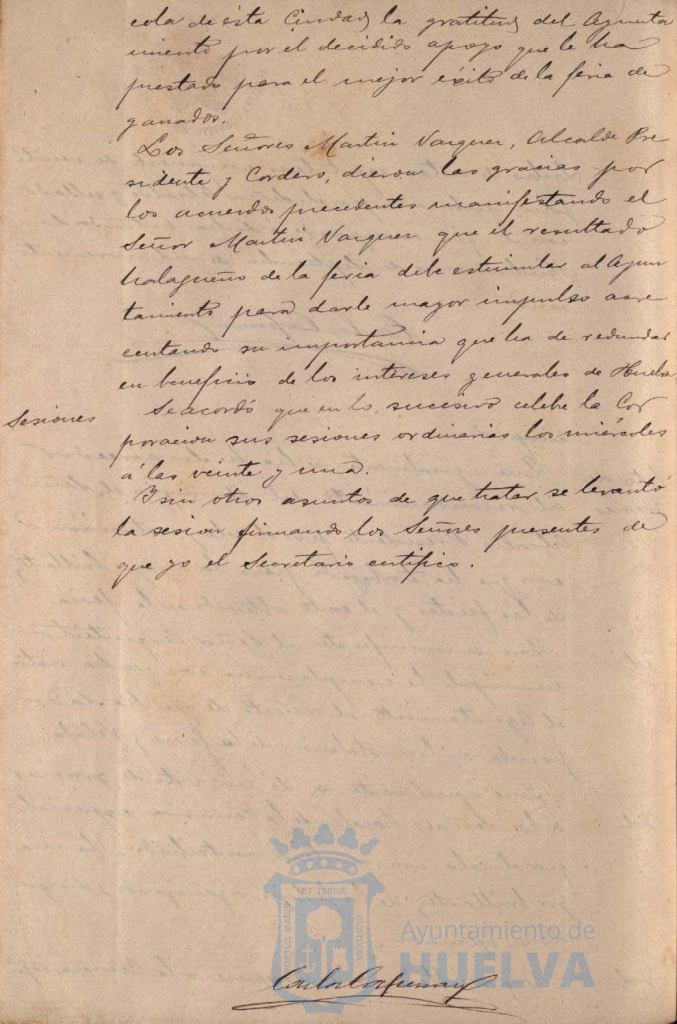 cola de ésta Ciudad, la gratitud del Ayunta
miento por el decidido apoyo que le ha
prestado para el mejor éxito de la feria de
ganados.
Los Señores Martin Vazquez, Alcalde Pre
sidente y Cordero, dieron las gracias por
los acuerdos precedentes manifestando el
Señor Martin Vazquez que el resultado
halagueño de la feria debe estimular al Ayun
tamiento para darle mayor impulso acre
centando su importancia que ha de redundar
en beneficio de los intereses generales de Huelva
Sesiones
Se acordó que en lo sucesivo celebe la Cor
poracion sus sesiones ordinarias los miércoles
á las veinte y una.
Y sin otros asuntos de que tratar se levantó
la sesion firmando los Señores presentes de
que yo el Secretario certifico.
PORTUS MARIS ET TERRAE CUSTODIA
Ayuntamiento de
HUELVA
Carlos